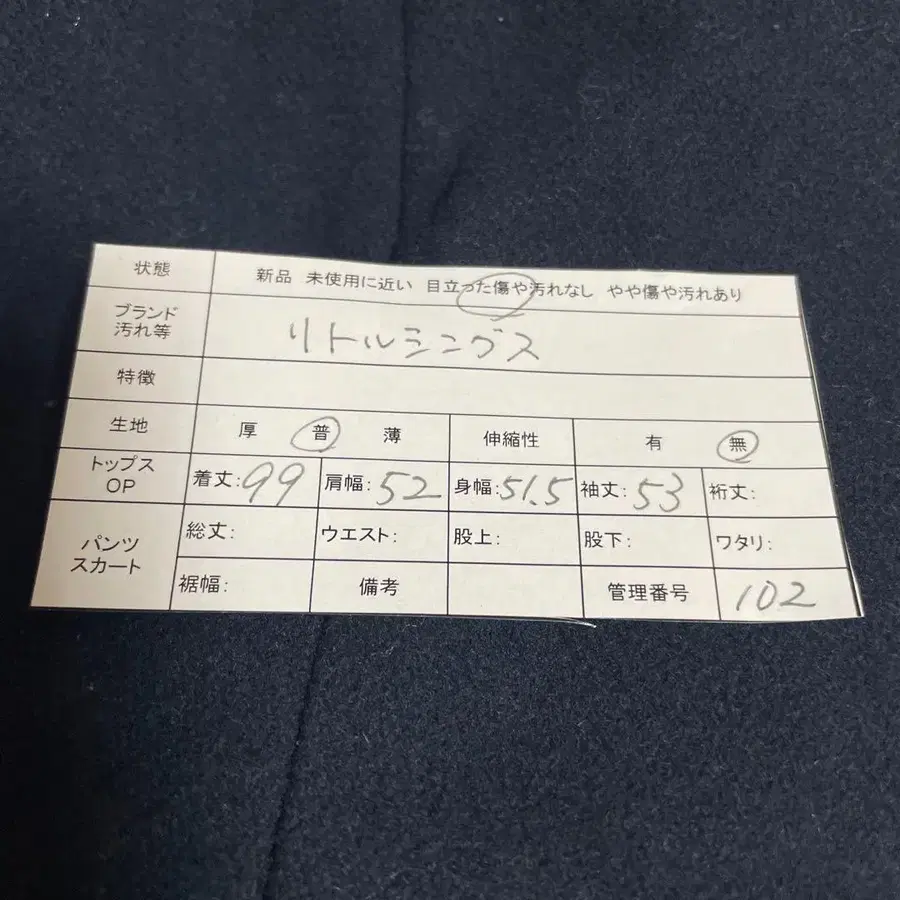 状態 新品 未使用に近い 目立った傷や汚れなし やや傷や汚れあり
ブランド
汚れ等 リトルシングス
特徴
生地 厚 普 薄 伸縮性 有 無
トップス
OP 着丈:99 肩幅:52 身幅:51.5 袖丈:53 裄丈:
パンツ
スカート 総丈: ウエスト: 股上: 股下: ワタリ:
裾幅: 備考 管理番号 102